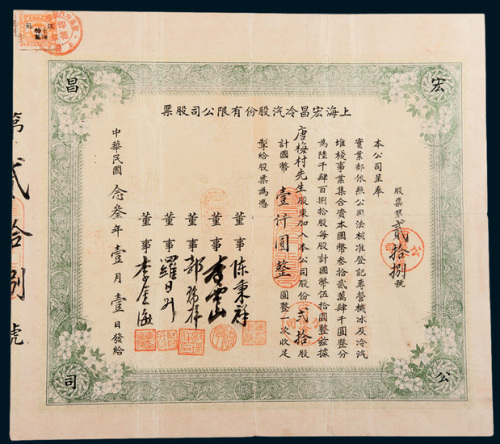 宏昌公司
上海宏昌冷汽股份有限公司股票
股票第貳拾捌號
本公司呈奉
實業部依照公司法核准登記專營機冰及冷汽
堆棧事業集合資本國幣叁拾貳萬肆千圓整分
為陸千肆百捌拾股每股計國幣伍拾圓整茲據
唐梅村先生股東加入本公司股份弍拾股
計國幣壹仟圓整一次收足
掣給股票為憑
董事陳秉祥
董事李雲山
董事郭
董事羅
董事李
中華民國念叁年壹月壹日發給
第貳拾捌號